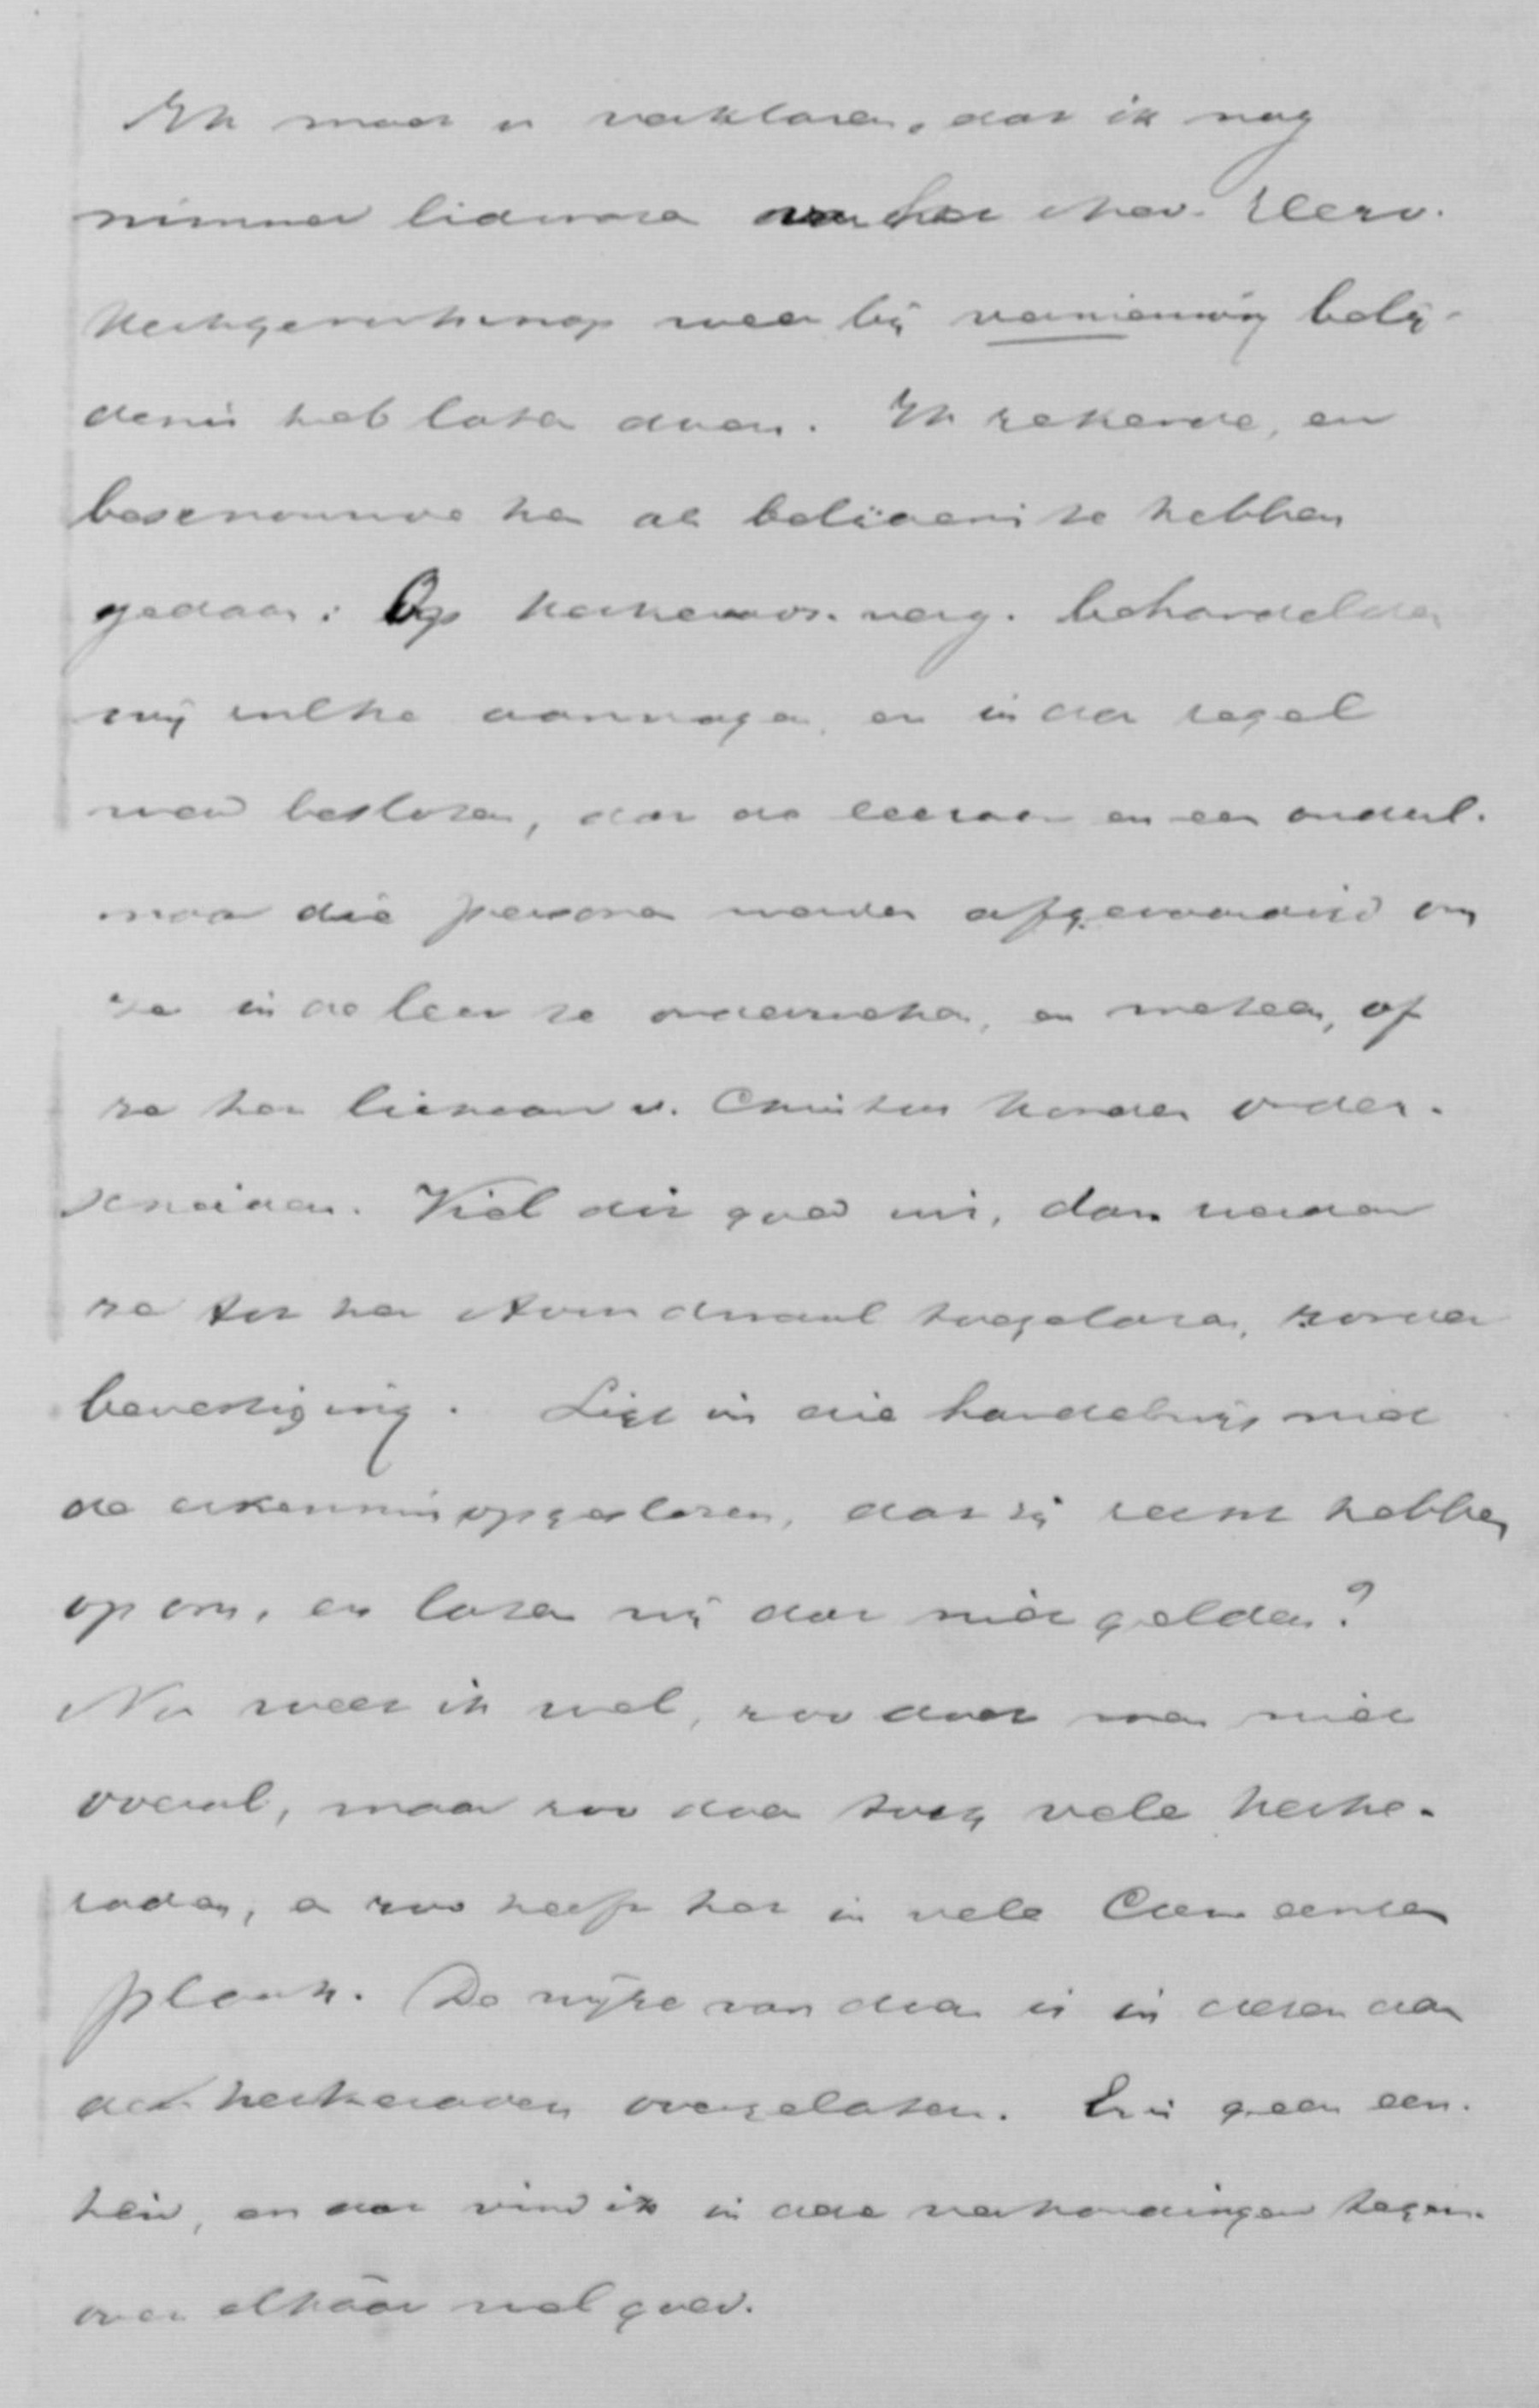 Ik moet u verklaren, dat ik nog
nimmer lidmaten van het Ned. Herv.
Kerkgenootschap weer bij vernieuwing belij-
denis heb laten doen. Ik rekende, en
beschouwde hen als belijdenis te hebben
gedaan: Op kerkeraads. verg. behandelden
wij zulke aanvragen, en in den regel
werd besloten, dat de leeraar en een ouderl.
naar die personen werden afgevaardigd om
ze in de leer te onderzoeken, en meteen, of
ze het lichaam v. Christus konden onder-
scheiden. Viel dit goed uit, dan werden
ze tot het Avondmaal toegelaten, zonder
bevestiging. Ligt in die handelwijs niet
de erkenning opgesloten, dat zij recht hebben
op ons, en laten wij dat niet gelden?
Nu weet ik wel, zoo doet men niet
overal, maar zoo doen toch vele kerke-
raden, en zoo heeft het in vele Gemeenten
plaats. De wijze van doen is in dezen aan
de kerkeraden overgelaten. Er is geen een-
heid, en dat vind ik in deze verhoudingen tegen-
over elkaâr wel goed.